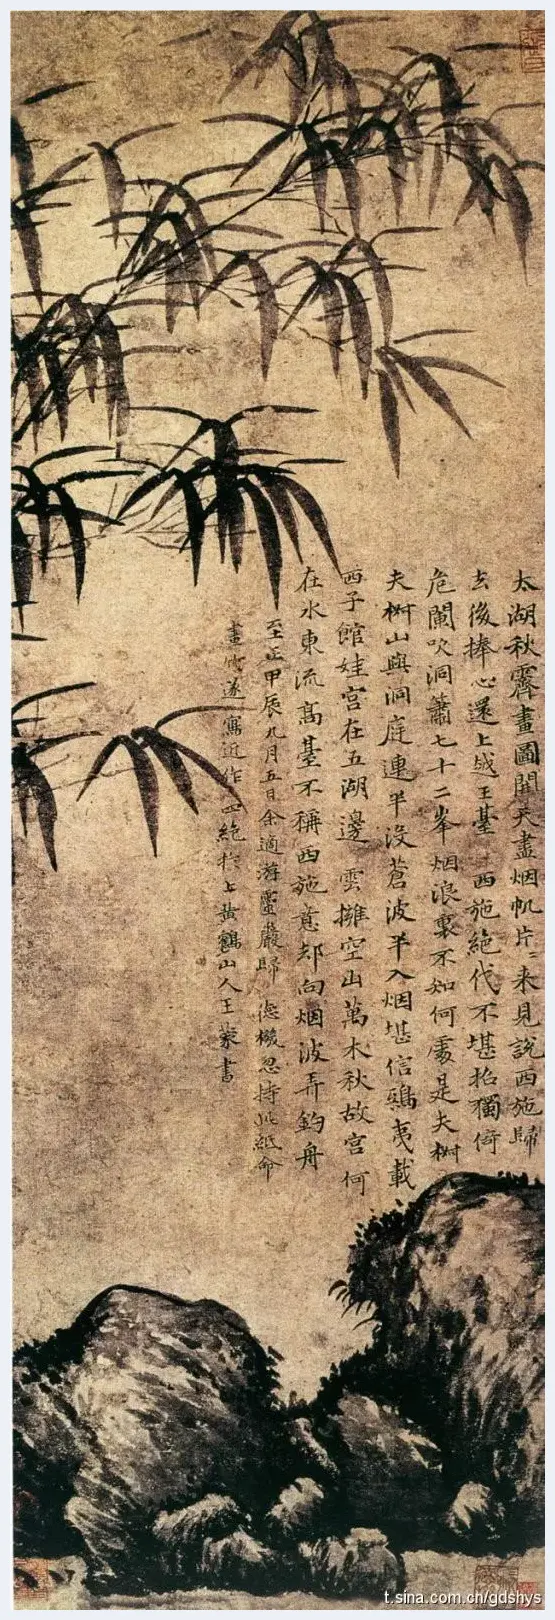 太湖秋霽畫圖開天盡烟帆片〻来見說西施歸
去後捧心還上越王臺　西施絶代不堪招獨倚
危闌吹洞簫七十二峯烟浪裏不如何處是夫椒
夫椒山與洞庭連半没蒼波半入烟堪信鴟夷載
西子館娃宫在五湖邊　雲擁空山萬木秋故宫何
在水東流高臺不稱西施意却向烟波弄釣舟
至正甲辰九月五日余適游靈巖歸　德機忽持此紙命
畫竹遂寫近作四絶於上黄鶴山人王蒙書
t.sina.com.cn/gdshys